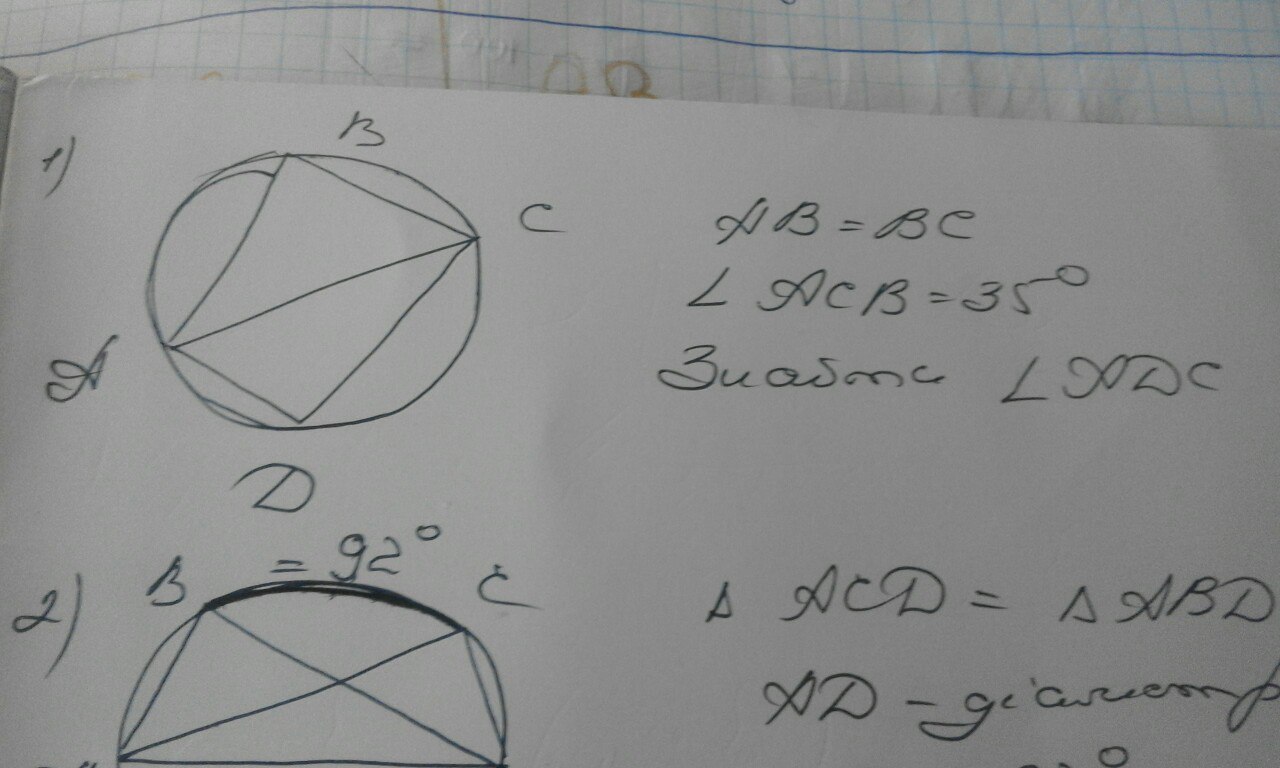 1)
B
C
A
D
AB = BC
∠ ACB = 35°
Знайти ∠ ADC
2)
B = 92° C
Δ ACD = Δ ABD
AD - діаметр